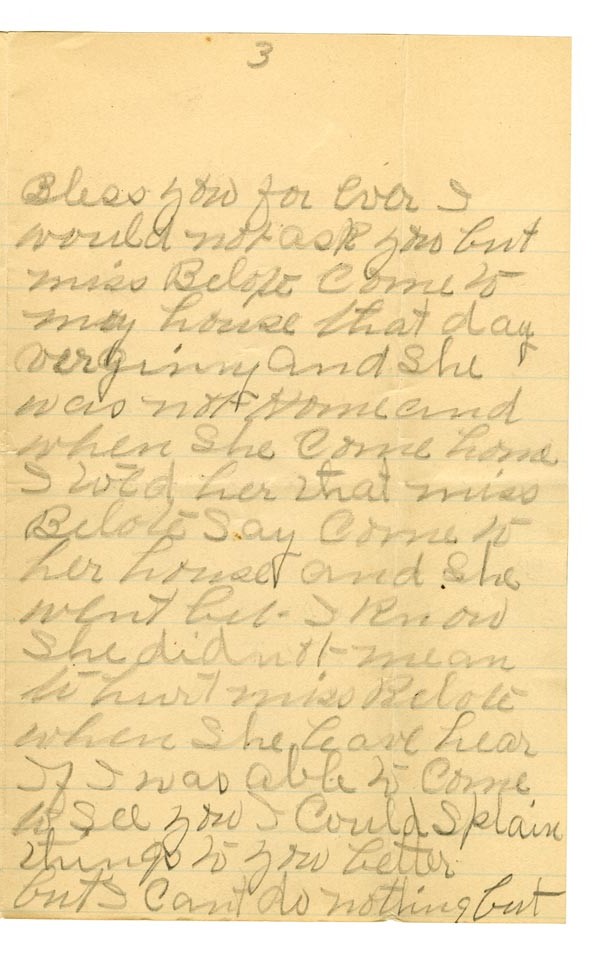 3
Bless you for ever I
would not ask you but
miss Belote Come to
my house that day
verginny and She
was not Home and
when She Come home
I told her that miss
Belote Say Come to
her house and She
went but I Know
She did not mean
to hurt miss Belote
when She leave hear
If I was able to Come
to See you I Could Splain
things to you better
but I Cant do nothing but